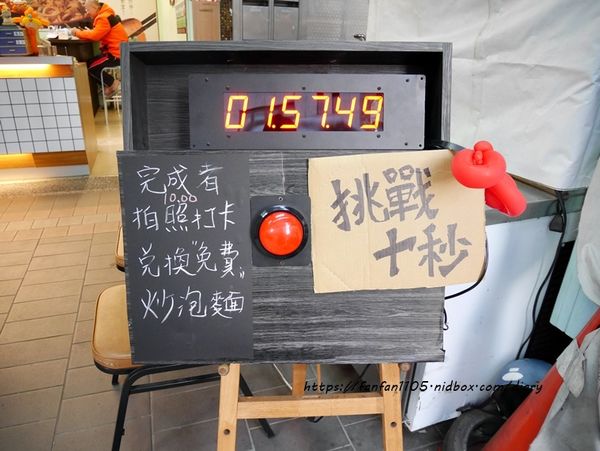 01.57.49
完成者
10.00
拍照打卡
兌換"免費"
炒泡麵
挑戰
十秒
https://fanfan1105.nidbox.com/diary